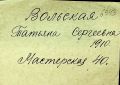 Вольская
Татьяна Сергеевна
1910
Мастерская 40.